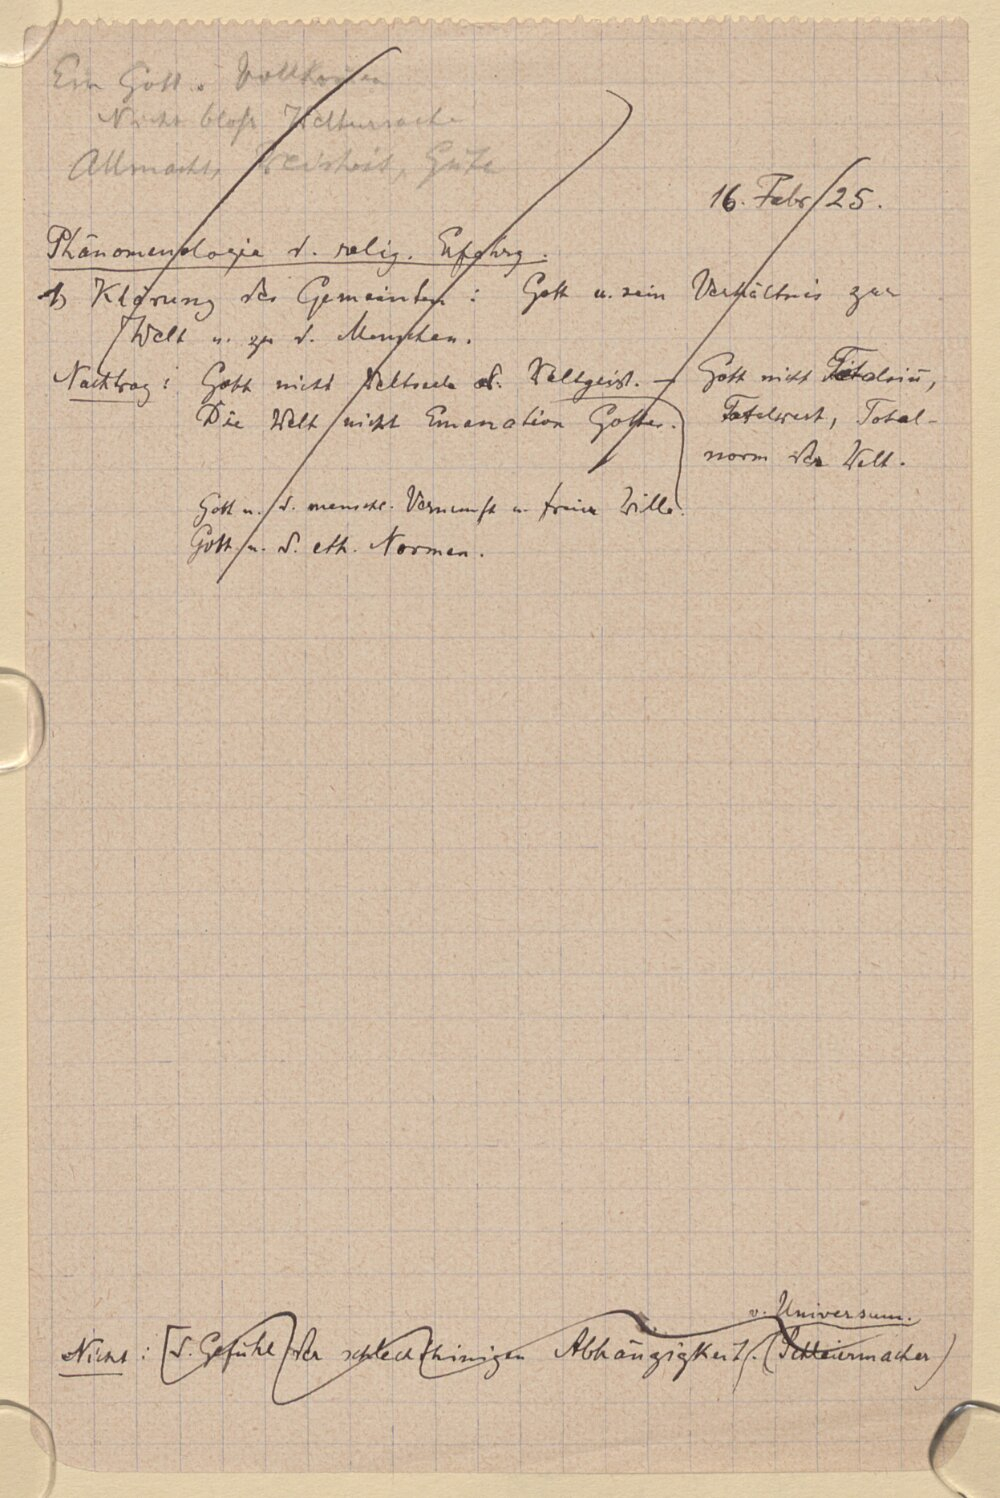 Ein Gott. Vollkommen
Nicht bloß Weltursache
Allmacht, Weisheit, Güte
16. Febr. 25.
Phänomenologie d. relig. Erfahrg.
1) Klärung des Gemeinten: Gott u. sein Verhältnis zur
Welt u. zu d. Menschen.
Nachtrag: Gott nicht Weltseele od. Weltgeist. – Gott nicht Totalsinn,
Die Welt nicht Emanation Gottes. Totalwert, Total-
norm der Welt.
Gott u. d. menschl. Vernunft u. freier Wille.
Gott u. d. eth. Normen.
v. Universum.
Nicht: [d. Gefühl der schlechthinigen Abhängigkeit. (Schleiermacher)